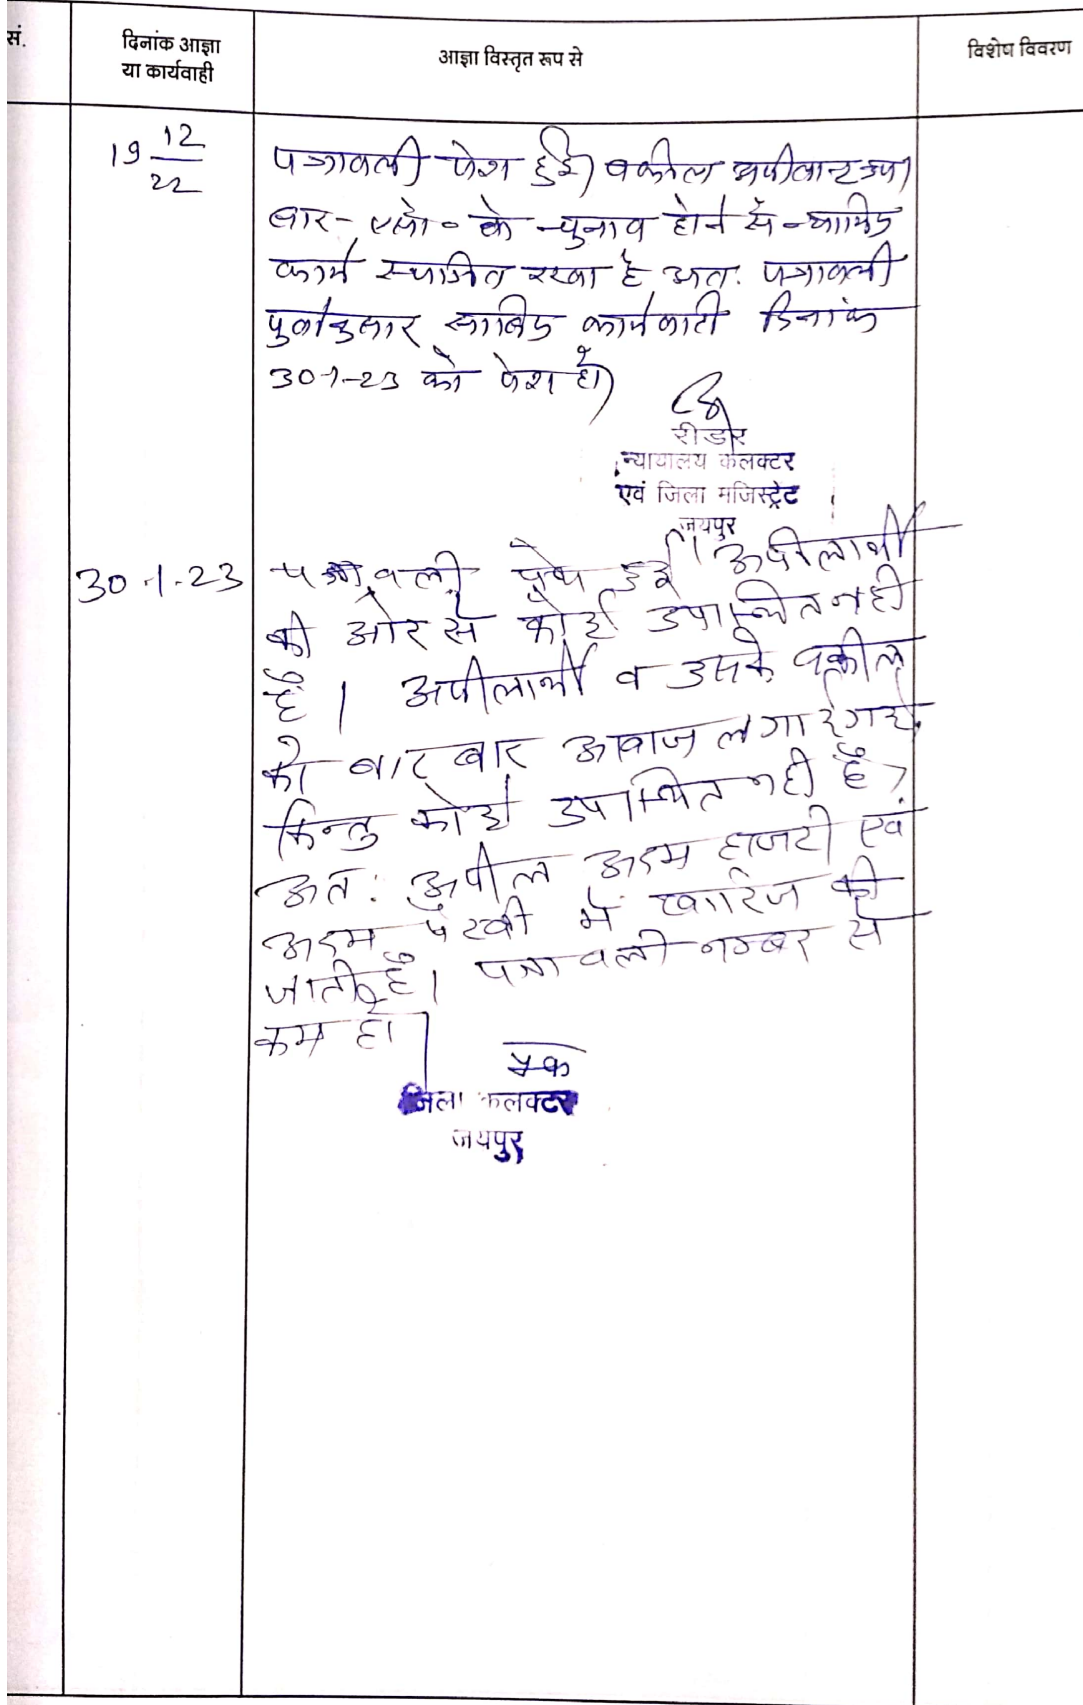 सं.
दिनांक आज्ञा
या कार्यवाही
आज्ञा विस्तृत रूप से
विशेष विवरण
19 12/22
पत्रावली पेश हुई। वकील अपीलान्ट उप।
बार- एसो॰ के चुनाव होने से न्यायिक
कार्य स्थगित रखा है अतः पत्रावली
पुर्वानुसार साबिक कार्यवाही दिनांक
30-1-23 को पेश हो।
रीडर
न्यायालय कलक्टर
एवं जिला मजिस्ट्रेट
जयपुर
30.1.23
पत्रावली पेष हुई। अपीलार्थी
की ओर से कोई उपस्थित नही
है। अपीलार्थी व उसके वकील
को बार बार आवाज लगाई गई
किन्तु कोई उपस्थित नही है।
अतः अपील अदम हाजरी एवं
अदम पैरवी में खारिज की
जाती है। पत्रावली नम्बर से
कम हो।
जिला कलक्टर
जयपुर